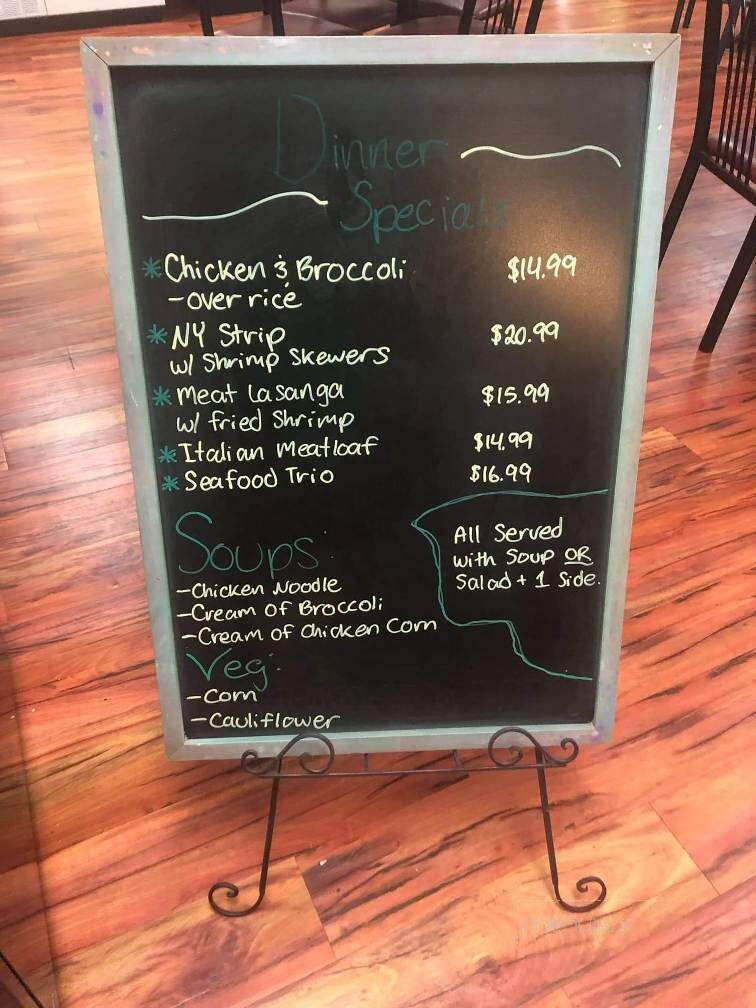 Dinner
Specials
*Chicken & Broccoli $14.99
-over rice
*NY Strip $20.99
w/ Shrimp Skewers
*Meat Lasanga $15.99
w/ fried Shrimp
*Italian Meatloaf $14.99
*Seafood Trio $16.99
Soups:
-Chicken Noodle
-Cream of Broccoli
-Cream of Chicken Corn
All Served
with Soup OR
Salad + 1 Side.
Veg:
-Corn
-Cauliflower